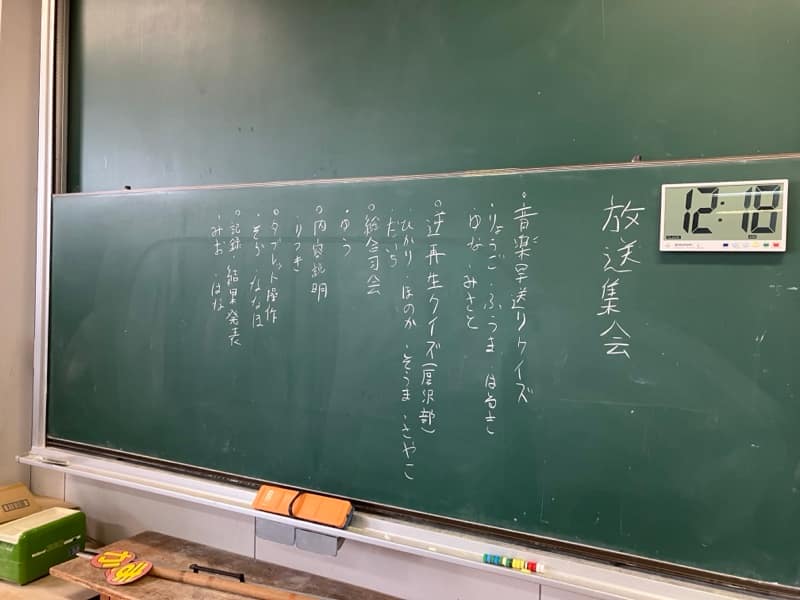 放送集会
。音楽早送りクイズ
・りょうご・ふうま はるき
ゆな・みさと
。逆再生クイズ(
・ひかり・ほのか・そうま・さやこ
・だいち
。総合司会
・ゆう
。内容説明
・りつき
。タブレット操作
・そら・ななほ
。記録・結果発表
・みお・はな
12:18